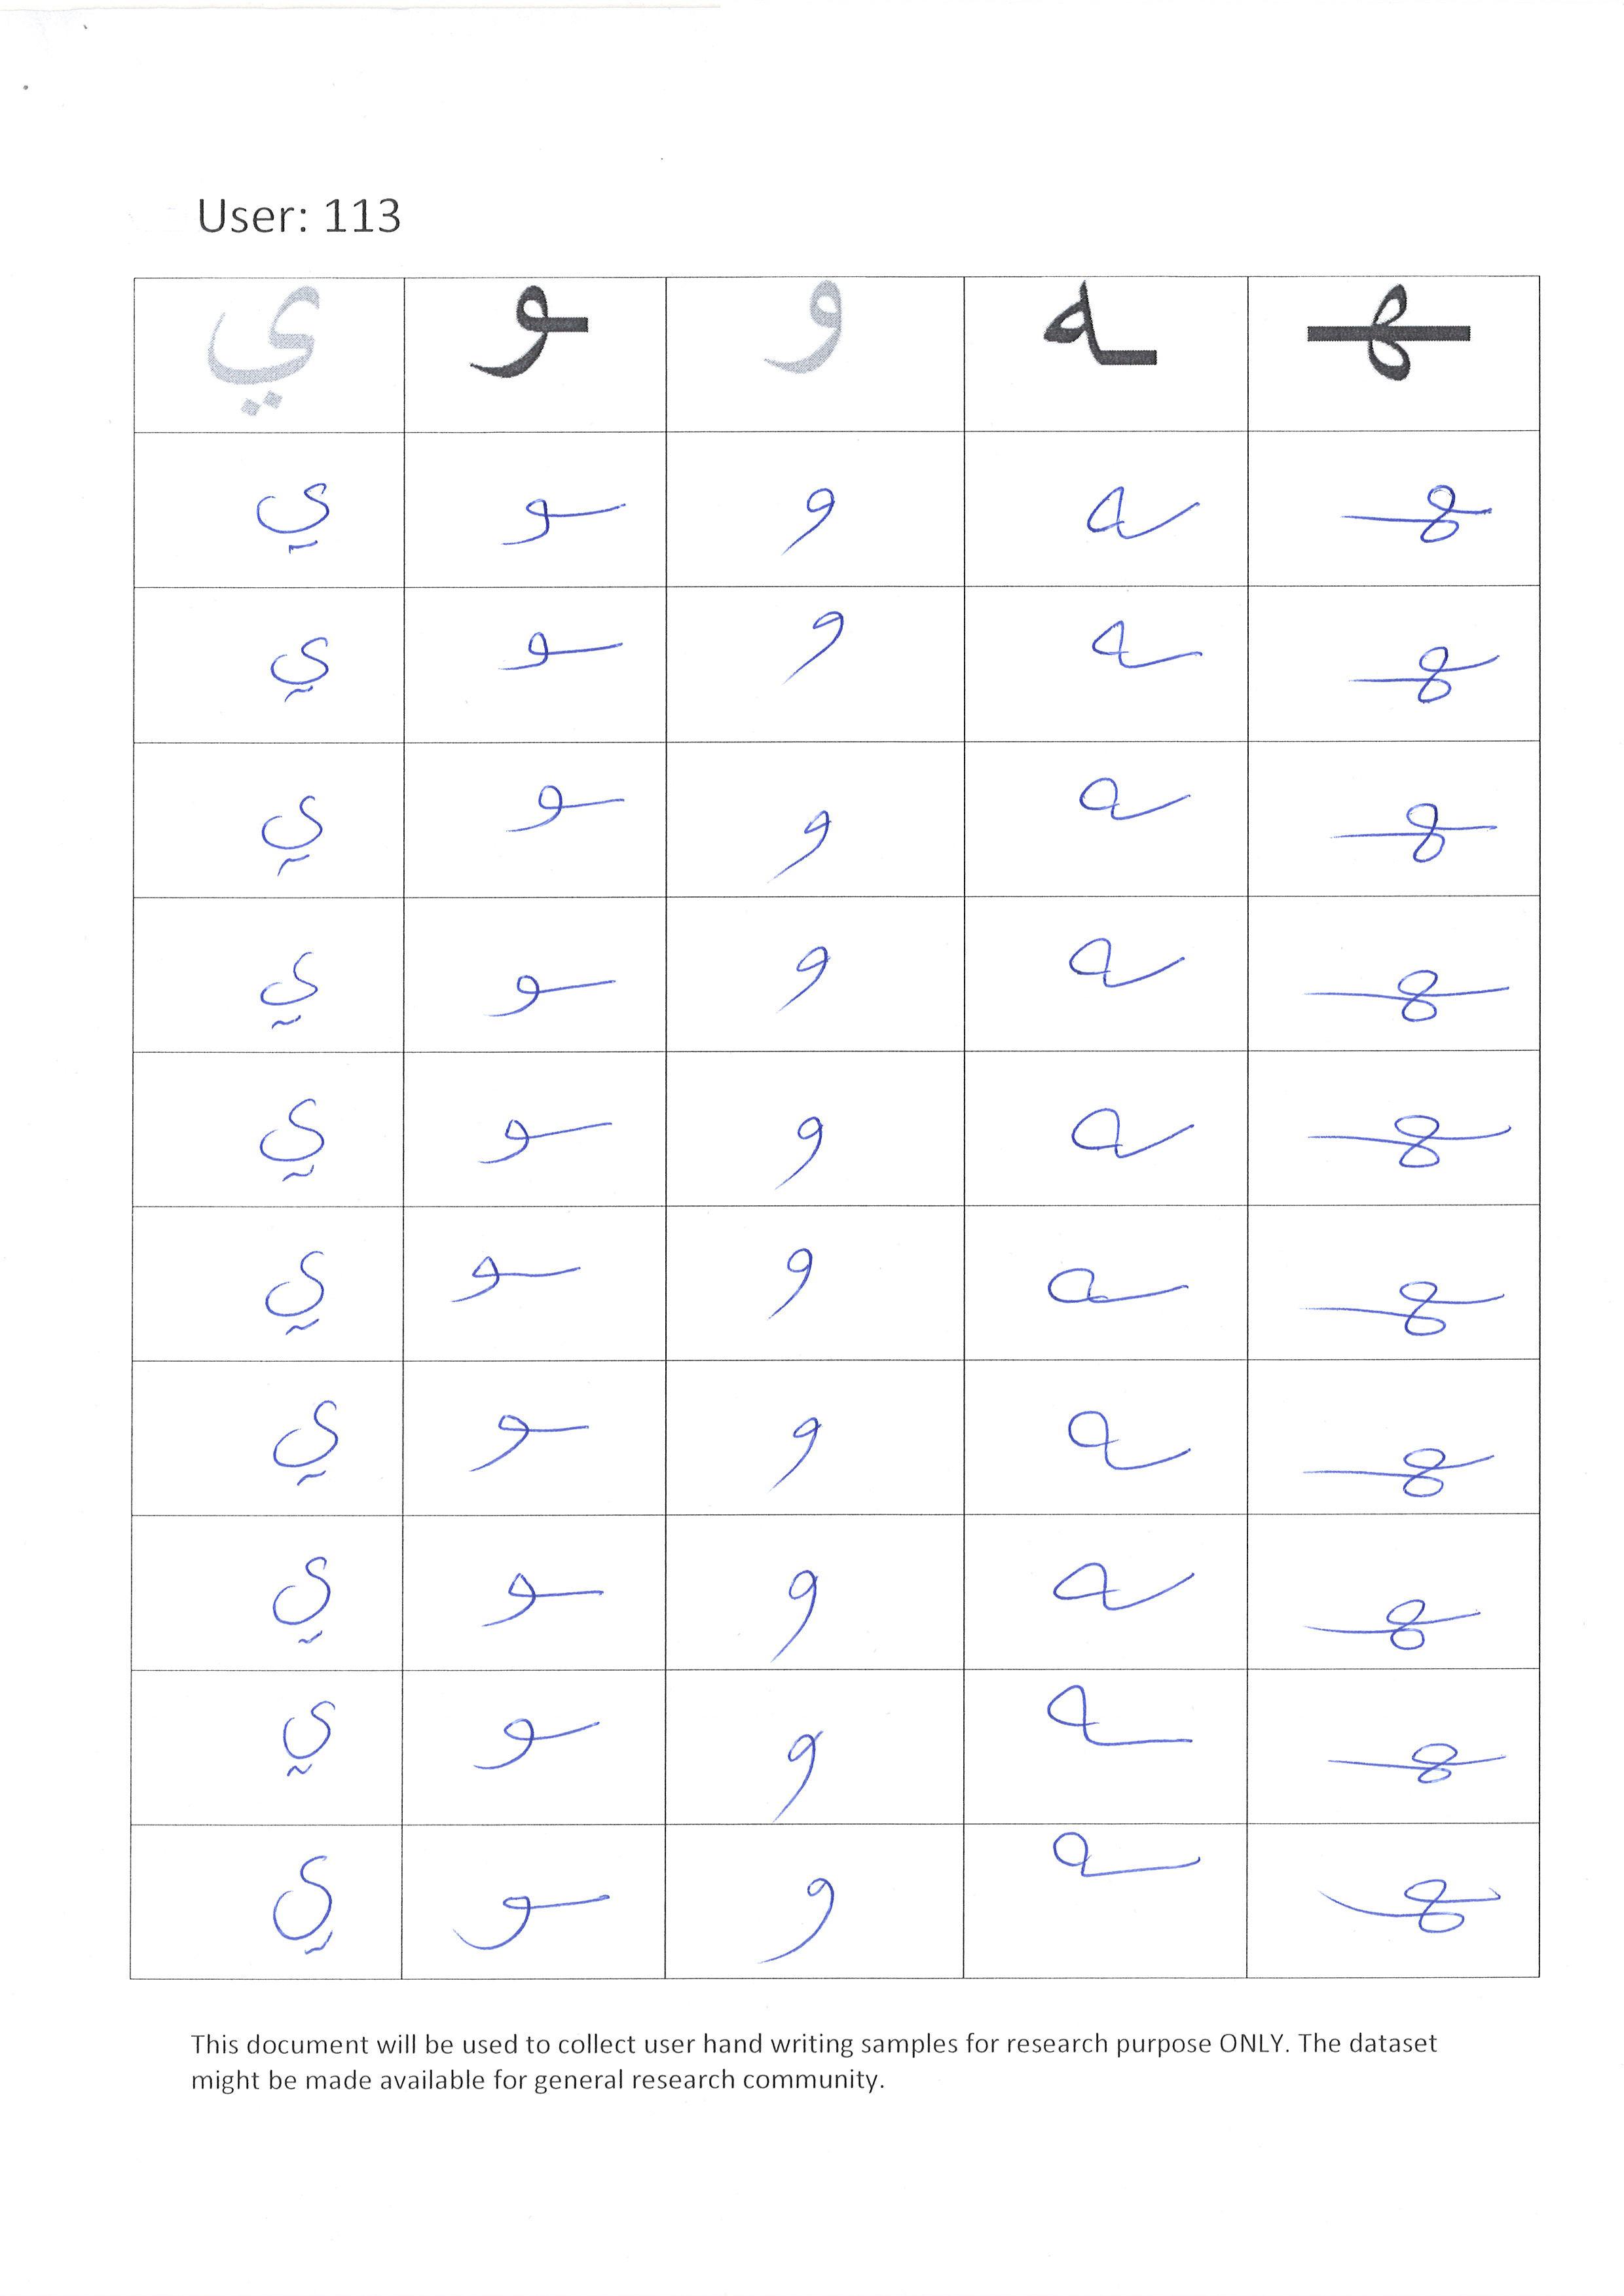 User: 113
ـهـ ـه و ـو ي
ـهـ ـه و ـو ي
ـهـ ـه و ـو ي
ـهـ ـه و ـو ي
ـهـ ـه و ـو ي
ـهـ ـه و ـو ي
ـهـ ـه و ـو ي
ـهـ ـه و ـو ي
ـهـ ـه و ـو ي
ـهـ ـه و ـو ي
ـهـ ـه و ـو ي
This document will be used to collect user hand writing samples for research purpose ONLY. The dataset
might be made available for general research community.